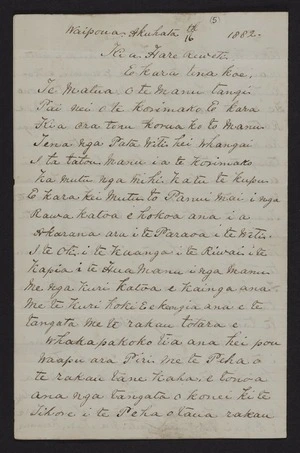 (5)
Waipoua Akuhata 16 1882.
Ki a. Hare
E kara tena koe,
Te Matua o te Manu tangi
Pai nei o te Korimako, E kara
Kia ora tonu korua ko to Manu
Tena nga Pata Witi hei whangai
I ta tatou Manu i a te Korimako
Ka mutu nga mihi Ka tu te kupu
E kara kei Mutu to Panui mai i nga
Rawa katoa e hokoa ana i a
Akarana ara i te Paraoa i te Witi.
I te Oti. i te Kuanga i te Riwai i te
Kapia i te Hua Manu i nga Manu
Me nga Kuri katoa e Kainga ana
Me te Kuri hoki e ana e te
tangata me te rakau totara
whakapakoko Eia ana hei pou
Waapu ara Piri, me te Peha o
te rakau tane Kaha. e tonoa
ana nga tangata o konei ki te
Tihore i te Peha o taua rakau